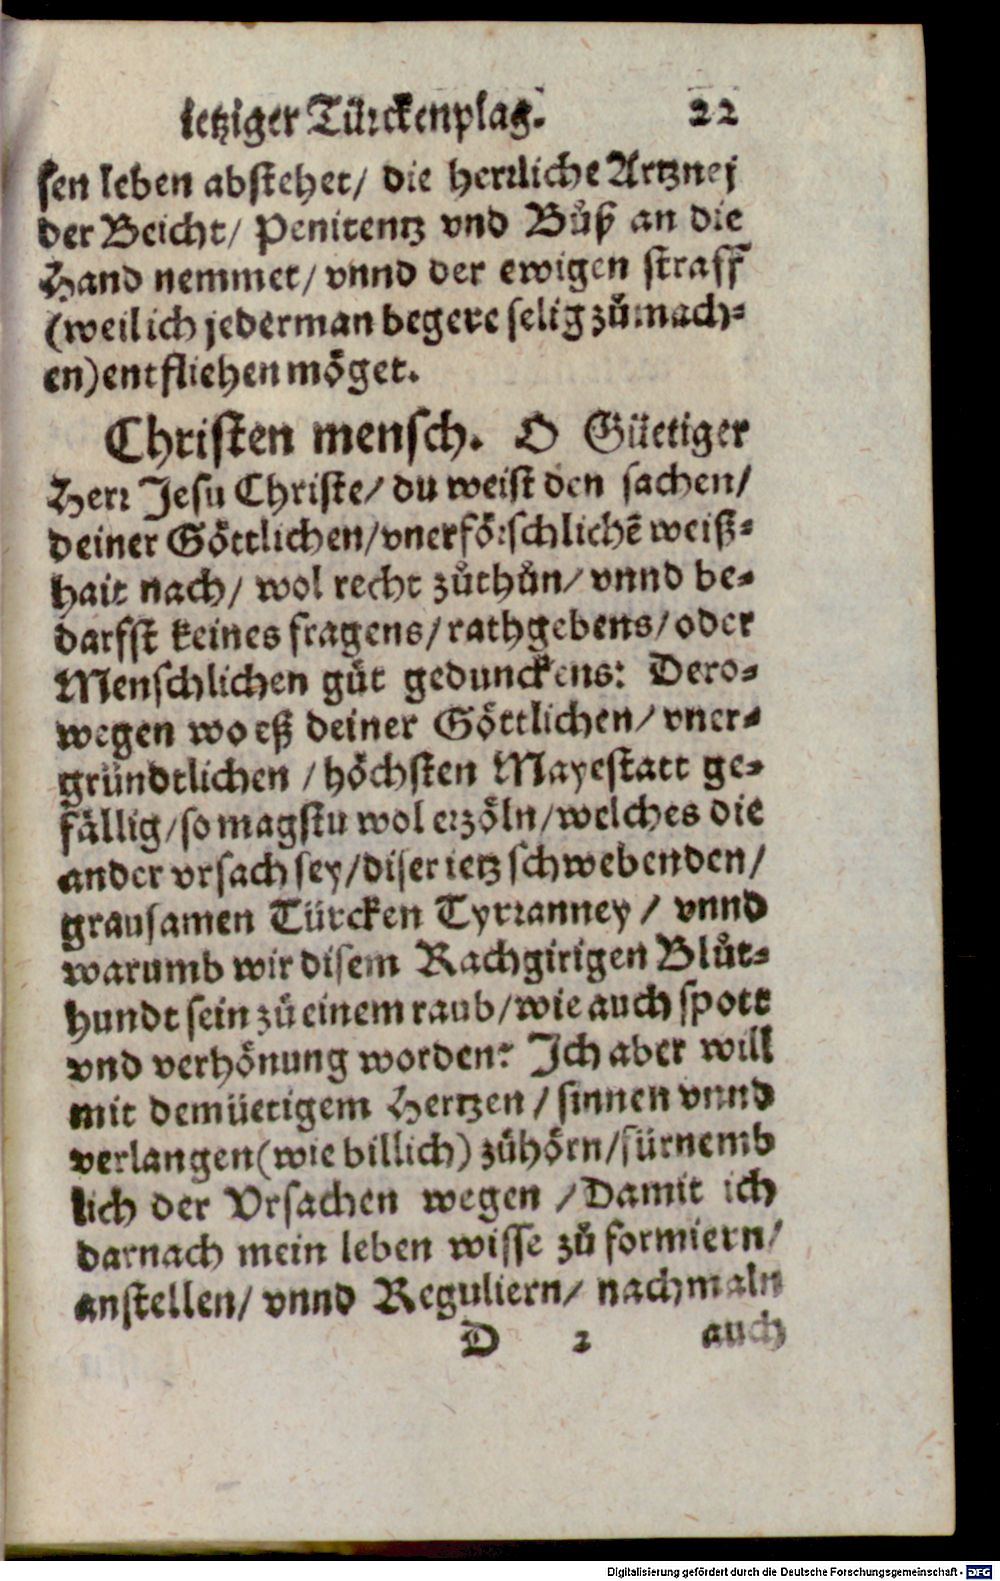 ietziger Türckenplag. 22
sen leben abstehet/ die herrliche Artznej
der Beicht/ Penitentz vnd Bůß an die
Hand nemmet/ vnnd der ewigen straff
(weil ich jederman begere selig zůmach-
en) entfliehen möget.
Christen mensch. O Güetiger
Herr Jesu Christe/ du weist den sachen/
deiner Göttlichen/ vnerförschlichē weiß-
hait nach/ wol recht zůthůn/ vnnd be-
darfst keines fragens/ rathgebens/ oder
Menschlichen gůt gedunckens: Dero-
wegen wo eß deiner Göttlichen/ vner-
gründtlichen / höchsten Mayestatt ge-
fällig/ so magstu wol erzöln/ welches die
ander vrsach sey/ diser ietz schwebenden/
grausamen Türcken Tyrranney / vnnd
warumb wir disem Rachgirigen Blůt-
hundt sein zů einem raub/ wie auch spott
vnd verhönung worden? Ich aber will
mit demüetigem Hertzen / sinnen vnnd
verlangen (wie billich) zůhörn/ fürnemb
lich der Vrsachen wegen / Damit ich
darnach mein leben wisse zů formiern/
anstellen/ vnnd Reguliern/ nachmaln
D 2 auch
Digitalisierung gefördert durch die Deutsche Forschungsgemeinschaft - DFG